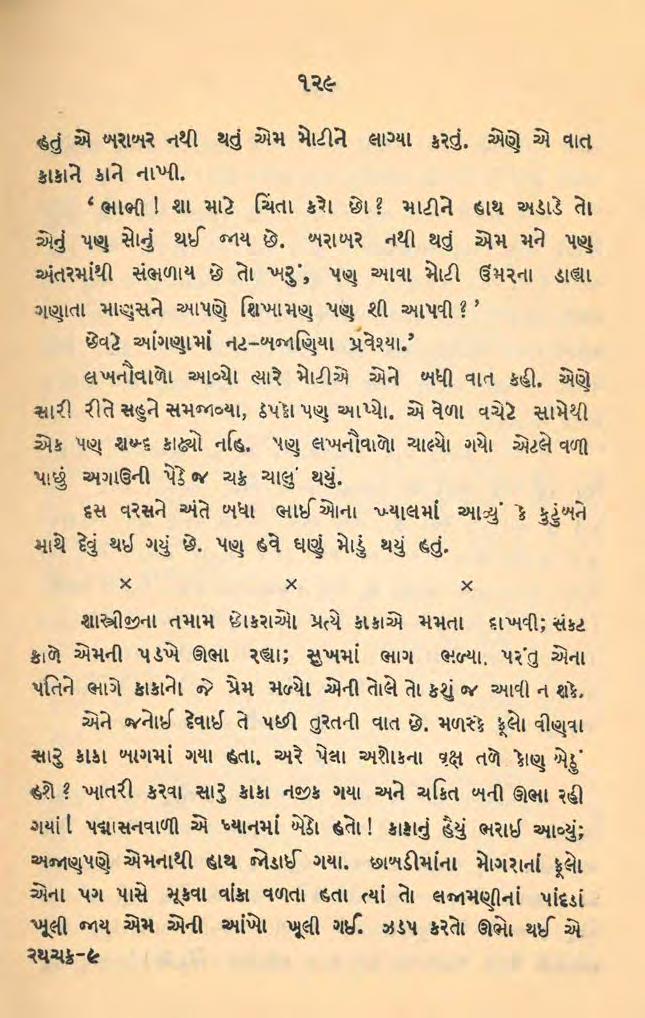 ૧૨૯
હતું એ બરાબર નથી થતું એમ મોટીને લાગ્યા કરતું. એણે એ વાત
કાકાને કાને નાખી.
‘ ભાભી ! શા માટે ચિંતા કરો છો ? માટીને હાથ અડાડે તો
એનું પણ સોનું થઈ જાય છે. બરાબર નથી થતું એમ મને પણ
અંતરમાંથી સંભળાય છે તો ખરું, પણ આવા મોટી ઉંમરના ડાહ્યા
ગણાતા માણસને આપણે શિખામણ પણ શી આપવી ? ’
છેવટે આંગણામાં નટ-બજાણિયા પ્રવેશ્યા.’
લખનૌવાળો આવ્યો ત્યારે મોટીએ એને બધી વાત કહી. એણે
સારી રીતે સહુને સમજાવ્યા, ઠપકો પણ આપ્યો. એ વેળા વચેટે સામેથી
એક પણ શબ્દ કાઢ્યો નહિ. પણ લખનૌવાળો ચાલ્યો ગયો એટલે વળી
પાછું અગાઉની પેઠે જ ચક્ર ચાલુ થયું.
દસ વરસને અંતે બધા ભાઈઓના ખ્યાલમાં આવ્યું કે કુટુંબને
માથે દેવું થઈ ગયું છે. પણ હવે ઘણું મોડું થયું હતું.
× × ×
શાસ્ત્રીજીના તમામ છોકરાઓ પ્રત્યે કાકાએ મમતા દાખવી; સંકટ
કાળે એમની પડખે ઊભા રહ્યા; સુખમાં ભાગ ભળ્યા. પરંતુ એના
પતિને ભાગે કાકાનો જે પ્રેમ મળ્યો એની તોલે તો કશું જ આવી ન શકે.
એને જનોઈ દેવાઈ તે પછી તુરતની વાત છે. મળસ્કે ફૂલો વીણવા
સારુ કાકા બાગમાં ગયા હતા. અરે પેલા અશોકના વૃક્ષ તળે કોણ બેઠું
હશે ? ખાતરી કરવા સારુ કાકા નજીક ગયા અને ચકિત બની ઊભા રહી
ગયા ! પદ્માસનવાળી એ ધ્યાનમાં બેઠો હતો ! કાકાનું હૈયું ભરાઈ આવ્યું;
અજાણપણે એમનાથી હાથ જોડાઈ ગયા. છાબડીમાંના મોગરાનાં ફૂલો
એના પગ પાસે મૂકવા વાંકા વળતા હતા ત્યાં તો લજામણીનાં પાંદડાં
ખૂલી જાય એમ એની આંખો ખૂલી ગઈ. ઝડપ કરતો ઊભો થઈ એ
રથચક્ર-૯